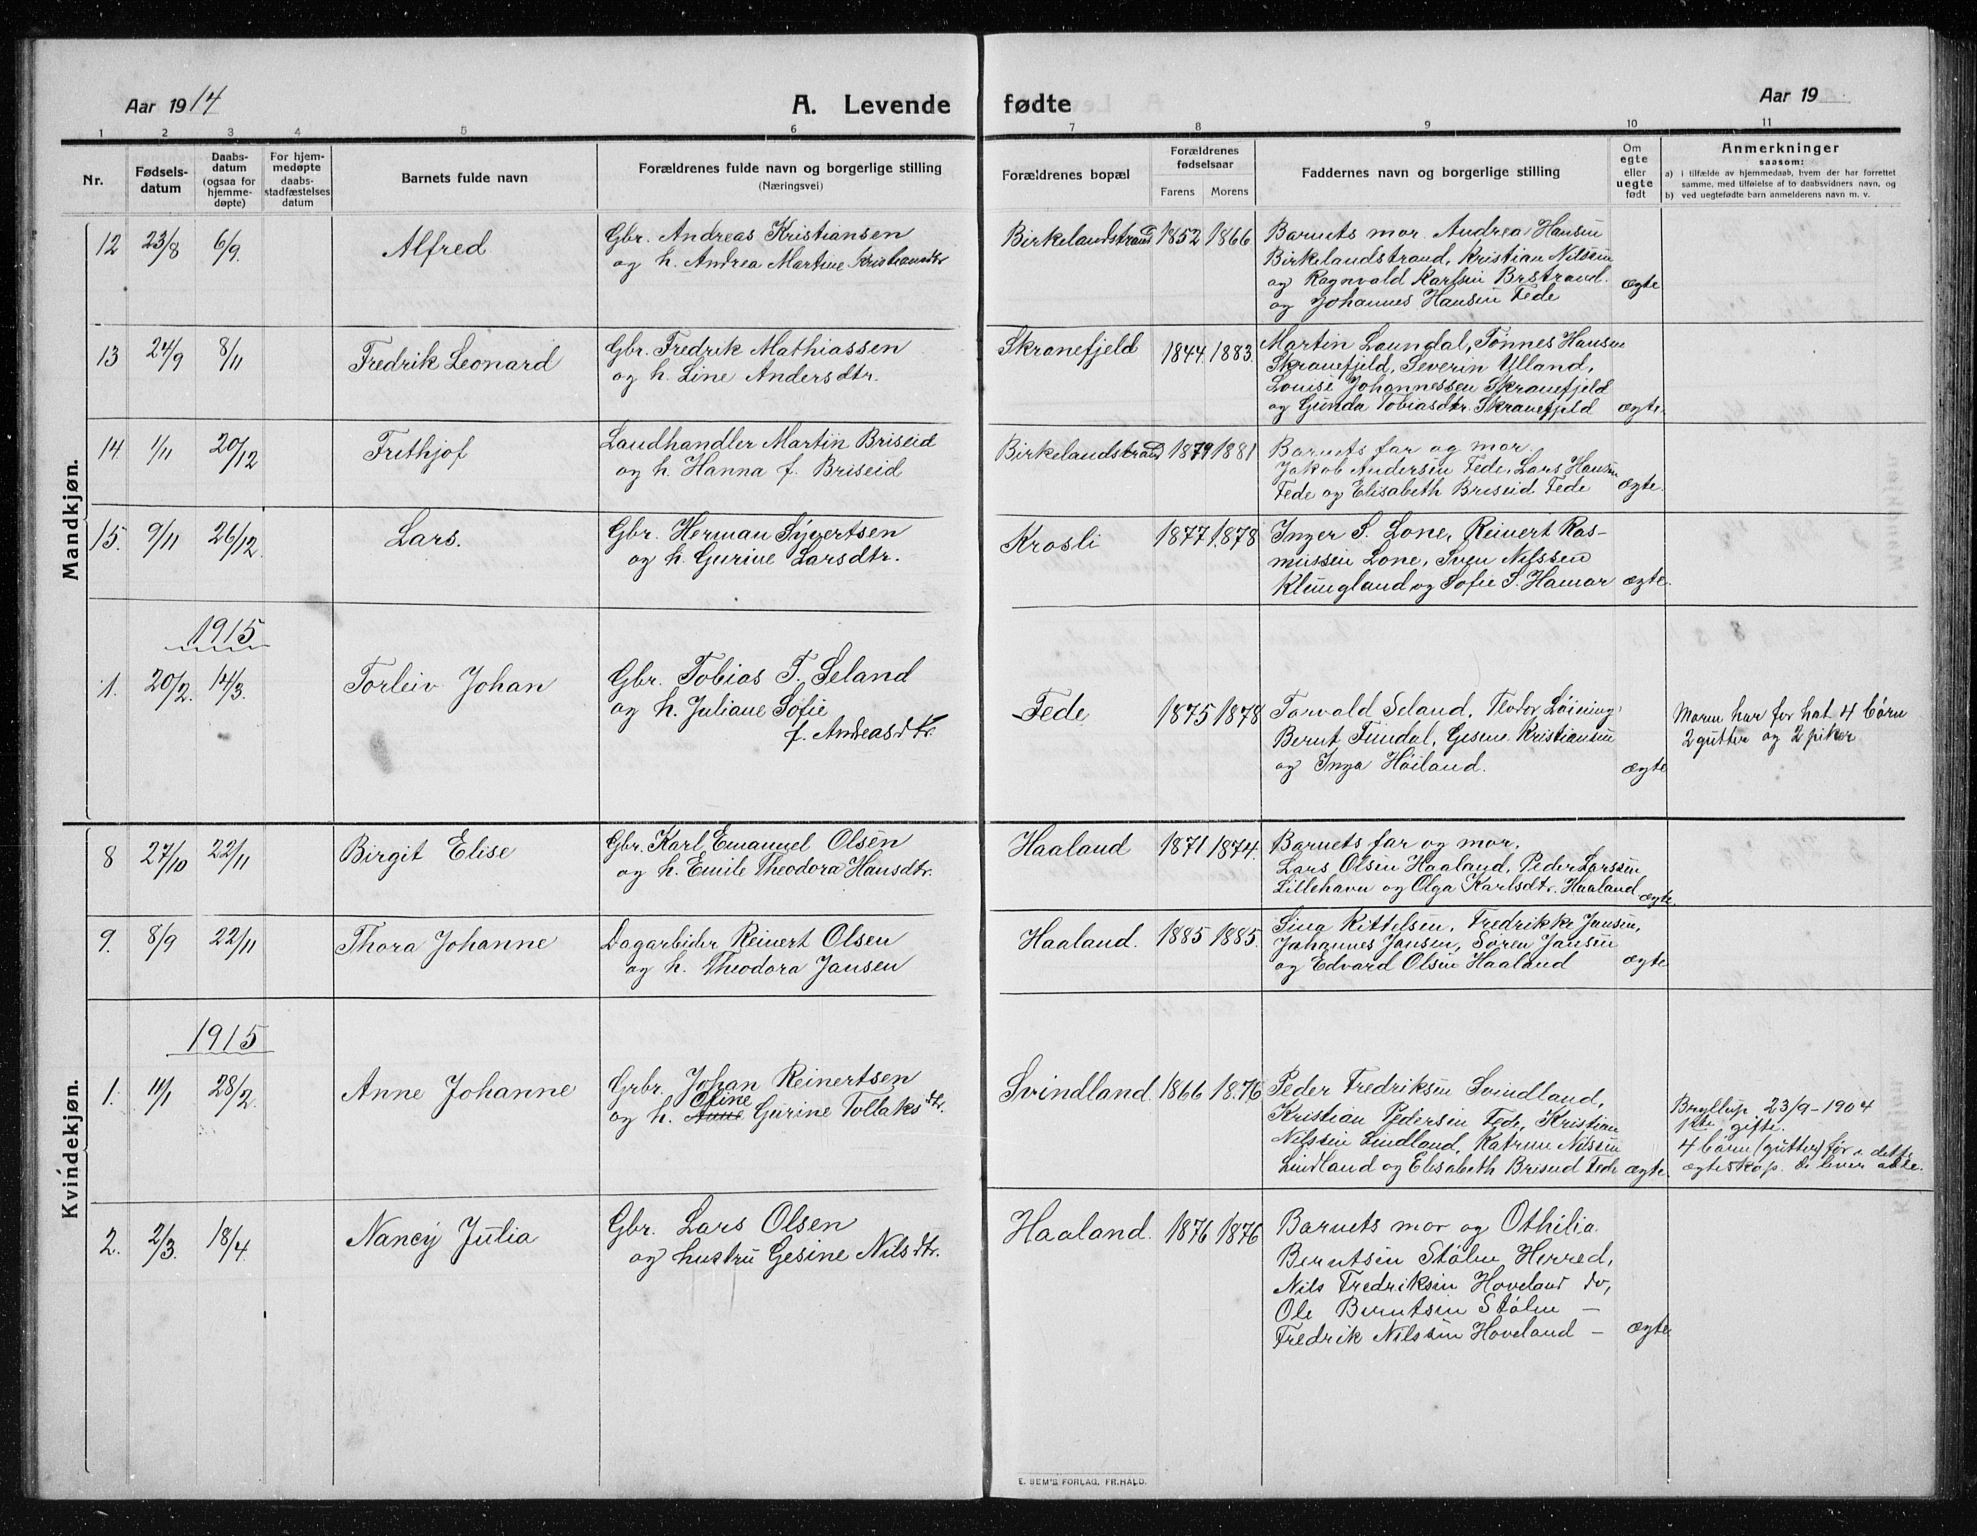 Aar 1914 A. Levende fødte Aar 19
1 2 3 4 5 6 7 8 9 10 11
Nr. | Fødsels-datum | Daabs-datum (ogsaa for hjemme-døpte) | For hjem-medøpte daabs-stadfæstelses datum | Barnets fulde navn | Forældrenes fulde navn og borgerlige stilling (Næringsvei) | Forældrenes bopæl | Forældrenes fødselsaar Farens Morens | Faddernes navn og borgerlige stilling | Om egte eller uegte født | Anmerkninger saasom: a) i tilfælde av hjemmedaab, hvem der har forrettet samme, med tilføielse af to daabsvidners navn, og b) ved uegtefødte barn anmelderens navn m. v.
Mandkjøn.
12 23/8 6/9. Alfred
Gbr. Andreas Kristiansen
og h. Andrea Martine Kristiansdtr
Birkelandstrand 1852 1866
Barnets mor Andrea Hansen
Birkelandstrand, Kristian Nilsen
og Ragnvald Karlsen Brstrand.
og Johannes Hansen Fede
ægte
13 24/9 8/11 Fredrik Leonard
Gbr. Fredrik Mathiassen
og h. Line Andersdtr.
Skranefjeld 1844. 1883.
Martin Laundal, Tønnes Hansen
Skranefjeld, Severin Ulland,
Louise Johannessen Skranefjeld
og Gunda Tobiasdtr. Skranefjeld
ægte.
14 1/11 20/12 Frithjof
Landhandler Martin Briseid
og h. Hanna f. Briseid
Birkelandstrand 1879 1881
Barnets far og mor,
Jakob Andersen Fede, Lars Hansen
Fede og Elisabeth Briseid Fede
ægte.
15. 9/11 26/12. Lars.
Gbr. Herman Sygertsen
og h. Gurine Larsdtr.
Krosli 1877 1878
Inger S. Lone, Reinert Ras-
mussen Lone, Sven Nilssen
Klungland og Sofie S. Hamar
ægte.
1915
1. 20/2. 14/3. Torleiv Johan
Gbr. Tobias T. Seland
og h. Juliane Sofie
f. Andreasdtr.
Fede 1875 1878
Torvald Seland, Teodor Løining
Bernt Fundal, Gesine Kristiansen
og Inga Høiland.
ægte
Moren har før hat 4 børn
2 gutter og 2 piker
Kvindekjøn.
8 27/10 22/11 Birgit Elise
Gbr. Karl Emanuel Olsen
og h. Emile Theodora Hansdtr.
Haaland 1871 1874.
Barnets far og mor,
Lars Olsen Haaland, Peder Larssen
Lillehavn og Olga Karlsdtr. Haaland
ægte.
9. 8/9 22/11 Thora Johanne
Dagarbider Reinert Olsen
og h. Theodora Jansen
Haaland. 1885 1885.
Sina Kittelsen, Fredrikke Jansen,
Johannes Jansen, Søren Jansen
og Edvard Olsen Haaland
ægte
1915
1. 11/1 28/2. Anne Johanne
Grbr. Johan Reinertsen
Oline
og h. Anne Gurine Tollaksdtr.
Svindland. 1866 1876
Peder Fredriksen Svindland,
Kristian Pedersen Fede, Kristian
Nilssen Lindland, Katrine Nilssen
Lindland og Elisabeth Briseid Fede
ægte.
Bryllup 23/9-1904
1ste gifte.
4 børn (gutter) før i dette
egteskap. De lever alle.
2. 2/3. 18/4. Nancy Julia
Gbr. Lars Olsen
og hustru Gesine Nilsdtr.
Haaland. 1876 1876
Barnets mor og Othilia
Berntsen Stølen Herred,
Nils Fredriksen Hoveland do,
Ole Berntsen Stølen —
Fredrik Nilssen Hoveland —
ægte
E. SEM'S FORLAG, FR.HALD.